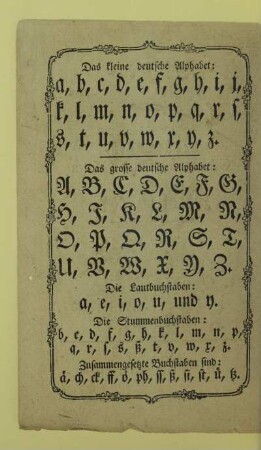 Das kleine deutsche Alphabet:
a, b, c, d, e, f, g, h, i, j,
k, l, m, n, o, p, q, r, ſ,
s, t, u, v, w, x, y, z.
Das grosse deutsche Alphabet:
A, B, C, D, E, F, G,
H, J, K, L, M, N,
O, P, Q, R, S, T,
U, V, W, X, Y, Z.
Die Lautbuchstaben:
a, e, i, o, u, und y.
Die Stummenbuchstaben:
b, c, d, f, g, h, k, l, m, n, p,
q, r, ſ, s, ß, t, v, w, x, z.
Zusammengesetzte Buchstaben sind:
ä, ch, ck, ff, ö, ph, ſſ, ß, ſi, ſt, ü, tz.